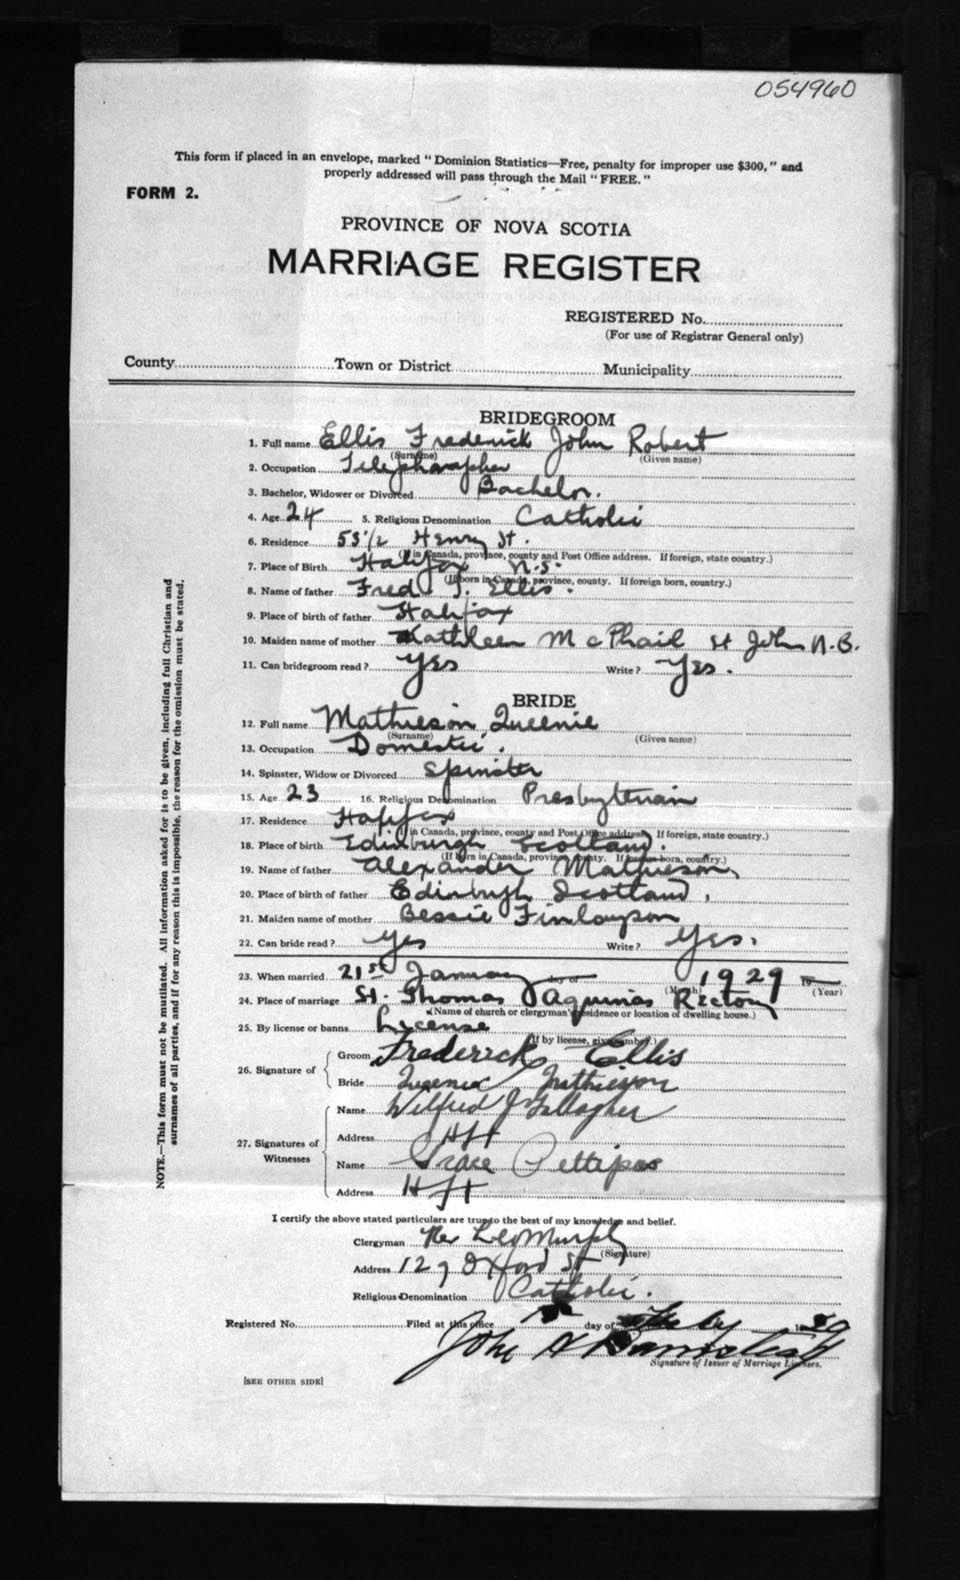 054960
This form if placed in an envelope, marked "Dominion Statistics—Free, penalty for improper use $300," and
properly addressed will pass through the Mail "FREE."
FORM 2.
PROVINCE OF NOVA SCOTIA
MARRIAGE REGISTER
REGISTERED No.
(For use of Registrar General only)
County Town or District Municipality
BRIDEGROOM
1. Full name Ellis Frederick John Robert
(Surname) (Given name)
2. Occupation Telegrapher
3. Bachelor, Widower or Divorced Bachelor.
4. Age 24 5. Religious Denomination Catholic
6. Residence 53½ Henry St.
(If in Canada, province, county and Post Office address. If foreign, state country.)
7. Place of Birth Halifax N.S.
(If born in Canada, province, county. If foreign born, country.)
8. Name of father Fred J. Ellis.
9. Place of birth of father Halifax
10. Maiden name of mother Kathleen McPhail St John N.B.
11. Can bridegroom read? Yes Write? Yes.
BRIDE
12. Full name Mathieson, Queenie
(Surname) (Given name)
13. Occupation Domestic.
14. Spinster, Widow or Divorced Spinster
15. Age 23 16. Religious Denomination Presbyterian
17. Residence Halifax
(If in Canada, province, county and Post Office address. If foreign, state country.)
18. Place of birth Edinburgh Scotland.
(If born in Canada, province, county. If foreign born, country.)
19. Name of father Alexander Mathieson,
20. Place of birth of father Edinburgh Scotland,
21. Maiden name of mother Bessie Finlayson
22. Can bride read? Yes Write? Yes.
23. When married 21st January day of 1929 19
(Month) (Year)
24. Place of marriage St. Thomas Aquinas Rectory
(Name of church or clergyman's residence or location of dwelling house.)
25. By license or banns License
(If by license, give number.)
26. Signature of Groom Frederick Ellis
Bride Queenie Mathieson
27. Signatures of Witnesses Name Wilfred J Gallagher
Address Hfx
Name Grace Pettipas
Address Hfx
I certify the above stated particulars are true to the best of my knowledge and belief.
Clergyman Rev Leo Murphy
(Signature)
Address 127 Oxford St
Religious Denomination Catholic.
Registered No. Filed at this office day of 19
John
Signature of Issuer of Marriage Licenses.
[SEE OTHER SIDE]
NOTE.—This form must not be mutilated. All information asked for is to be given, including full Christian and
surnames of all parties, and if for any reason this is impossible, the reason for the omission must be stated.